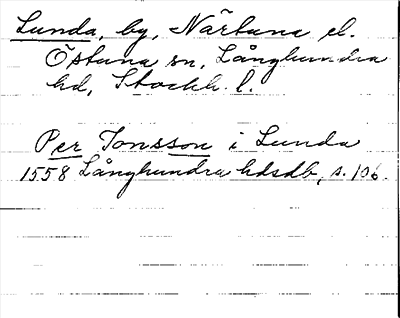 Lunda, by, Närtuna el.
Östuna sn, Långhundra
hd, Stockh. l.
Per Jonsson i Lunda
1558 Långhundra hdsdb, s. 106.